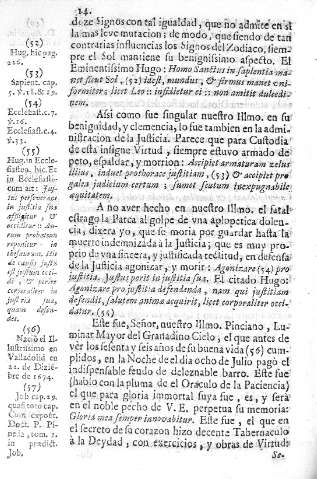 14.
doze Signos con tal igualdad, que no admite en si
la mas leve mutacion: de modo, que siendo de tan
contrarias influencias los Signos del Zodiaco, siem-
pre el Sol mantiene su benignissimo aspecto. El
Eminentissimo Hugo: Homo Sanctus in sapientia ma-
net sicut Sol, (52) idest, mundus, & firmus manet uni-
formiter; licet Leo:: infidietur ei:: non amitit dulcedi-
nem.
Assi como fue singular nuestro Illmo. en su
benignidad, y clemencia, lo fue tambien en la admi-
nistracion de la Justicia. Parece que para Custodia
de esta insigne Virtud, siempre estuvo armado de
peto, espaldar, y morrion: Accipiet armaturam zelus
illius, induet pro thorace justitiam, (53) & accipiet pro
galea judicium certum; sumet scutum inexpugnabile
æquitatem.
A no aver hecho en nuestro Illmo. el fatal
estrago la Parca al golpe de una aplopetica dolen-
cia, dixera yo, que se moria por guardar hasta la
muerte indemnizada à la Justicia; que es muy pro-
prio de una sincera, y justificada rectitud, en defensa
de la Justicia agonizar, y morir: Agonizare (54) pro
justitia. Justus perit in justitia sua. El citado Hugo:
Agonizare pro justitia defendenda, nam qui justitiam
defendit, salutem animæ acquirit, licet corporaliter occi-
datur. (55)
Este fue, Señor, nuestro Illmo. Pinciano, Lu-
minar Mayor del Granadino Cielo, el que antes de
ver los setenta y seis años de su buena vida (56) cum-
plidos, en la Noche del dia ocho de Julio pagò el
indispensable feudo de deleznable barro. Este fue
(hablo con la pluma de el Oraculo de la Paciencia)
el que para gloria immortal suya fue, es, y serà
en el noble pecho de V. E. perpetua su memoria:
Gloria mea semper innovabitur. Este fue, el que en
el secreto de su corazon hizo decente Tabernaculo
à la Deydad, con exercicios, y obras de Virtud:
Se-
(52)
Hug. hic pag.
216.
(53)
Sapient. cap.
5. ℣.18. & 19.
(54)
Ecclesiast. c. 7.
℣.16.
Ecclesiast. c. 4.
℣.33.
(55)
Hug. in Eccle-
siastic. hic. Et
in Ecclesiasti-
cum
(56)
Naciò el Il-
lustrissimo en
Valladolid en
22. de Dizie-
bre de 1674.
(57)
Job cap. 29.
Cum exposit.
Doct. P. Pi-
neda, tom. 2.
in prædict.
Job.